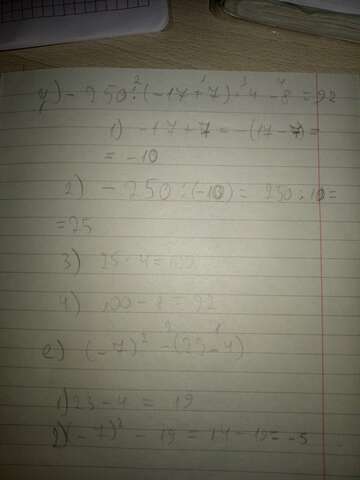 - 250 : (-17+7) · 4 - 8 = 92
1) -17+7 = -(17-7) =
= -10
2) -250 : (-10) = 250 : 10 =
= 25
3) 25 · 4 = 100
4) 100 - 8 = 92
e) (-7)² - (23-4)
1) 23 - 4 = 19
2) (-7)² - 19 = 14 - 19 = -5